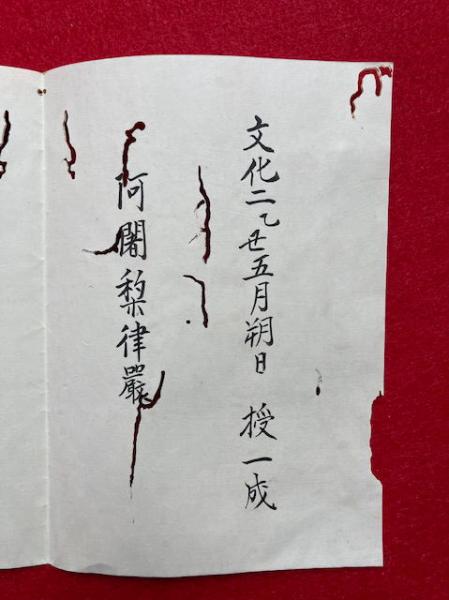 文化二乙丑五月朔日　授一成
阿闍梨律嚴